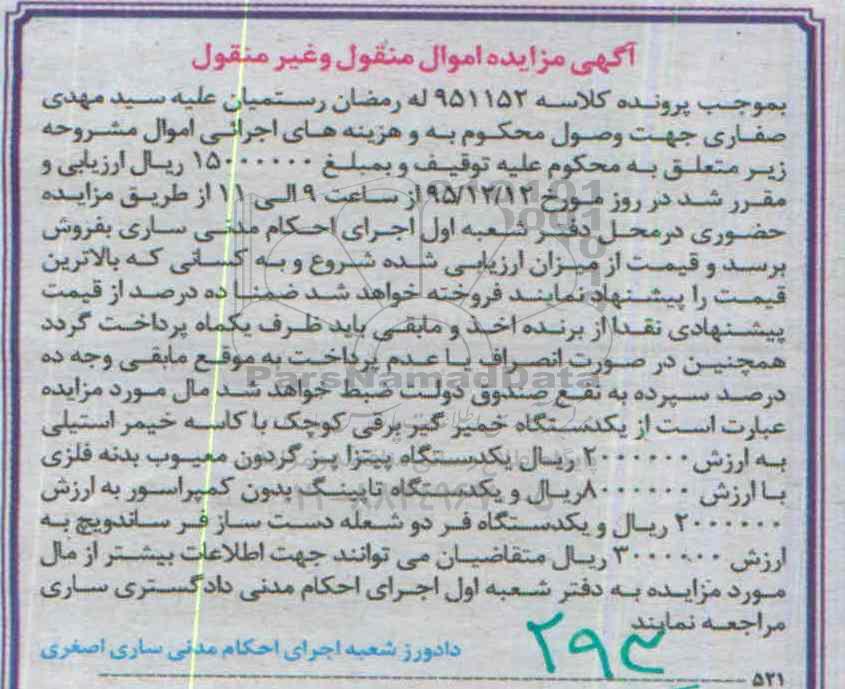 آگهی مزایده اموال منقول وغیر منقول
بموجب پرونده کلاسه ۹۵۱۱۵۲ له رمضان رستمیان علیه سید مهدی
صفاری جهت وصول محکوم به و هزینه های اجرائی اموال مشروحه
زیر متعلق به محکوم علیه توقیف و بمبلغ ۱۵۰۰۰۰۰۰۰ ریال ارزیابی و
مقرر شد در روز مورخ ۹۵/۱۲/۱۲ از ساعت ۹ الی ۱۱ از طریق مزایده
حضوری درمحل دفتر شعبه اول اجرای احکام مدنی ساری بفروش
برسد و قیمت از میزان ارزیابی شده شروع و به کسانی که بالاترین
قیمت را پیشنهاد نمایند فروخته خواهد شد ضمنا ده درصد از قیمت
پیشنهادی نقدا از برنده اخذ و مابقی باید ظرف یکماه پرداخت گردد
همچنین در صورت انصراف یا عدم پرداخت به موقع مابقی وجه ده
درصد سپرده به نفع صندوق دولت ضبط خواهد شد مال مورد مزایده
عبارت است از یکدستگاه خمیر گیر برقی کوچک با کاسه خیمر استیلی
به ارزش ۲۰۰۰۰۰۰۰ ریال یکدستگاه پیتزا پز گردون معیوب بدنه فلزی
با ارزش ۸۰۰۰۰۰۰۰ریال و یکدستگاه تاپینگ بدون کمپراسور به ارزش
۲۰۰۰۰۰۰۰ ریال و یکدستگاه فر دو شعله دست ساز فر ساندویچ به
ارزش ۳۰۰۰۰۰۰۰ ریال متقاضیان می توانند جهت اطلاعات بیشتر از مال
مورد مزایده به دفتر شعبه اول اجرای احکام مدنی دادگستری ساری
مراجعه نمایند
دادورز شعبه اجرای احکام مدنی ساری اصغری
۲۹۳
۵۲۱
ParsNamadData